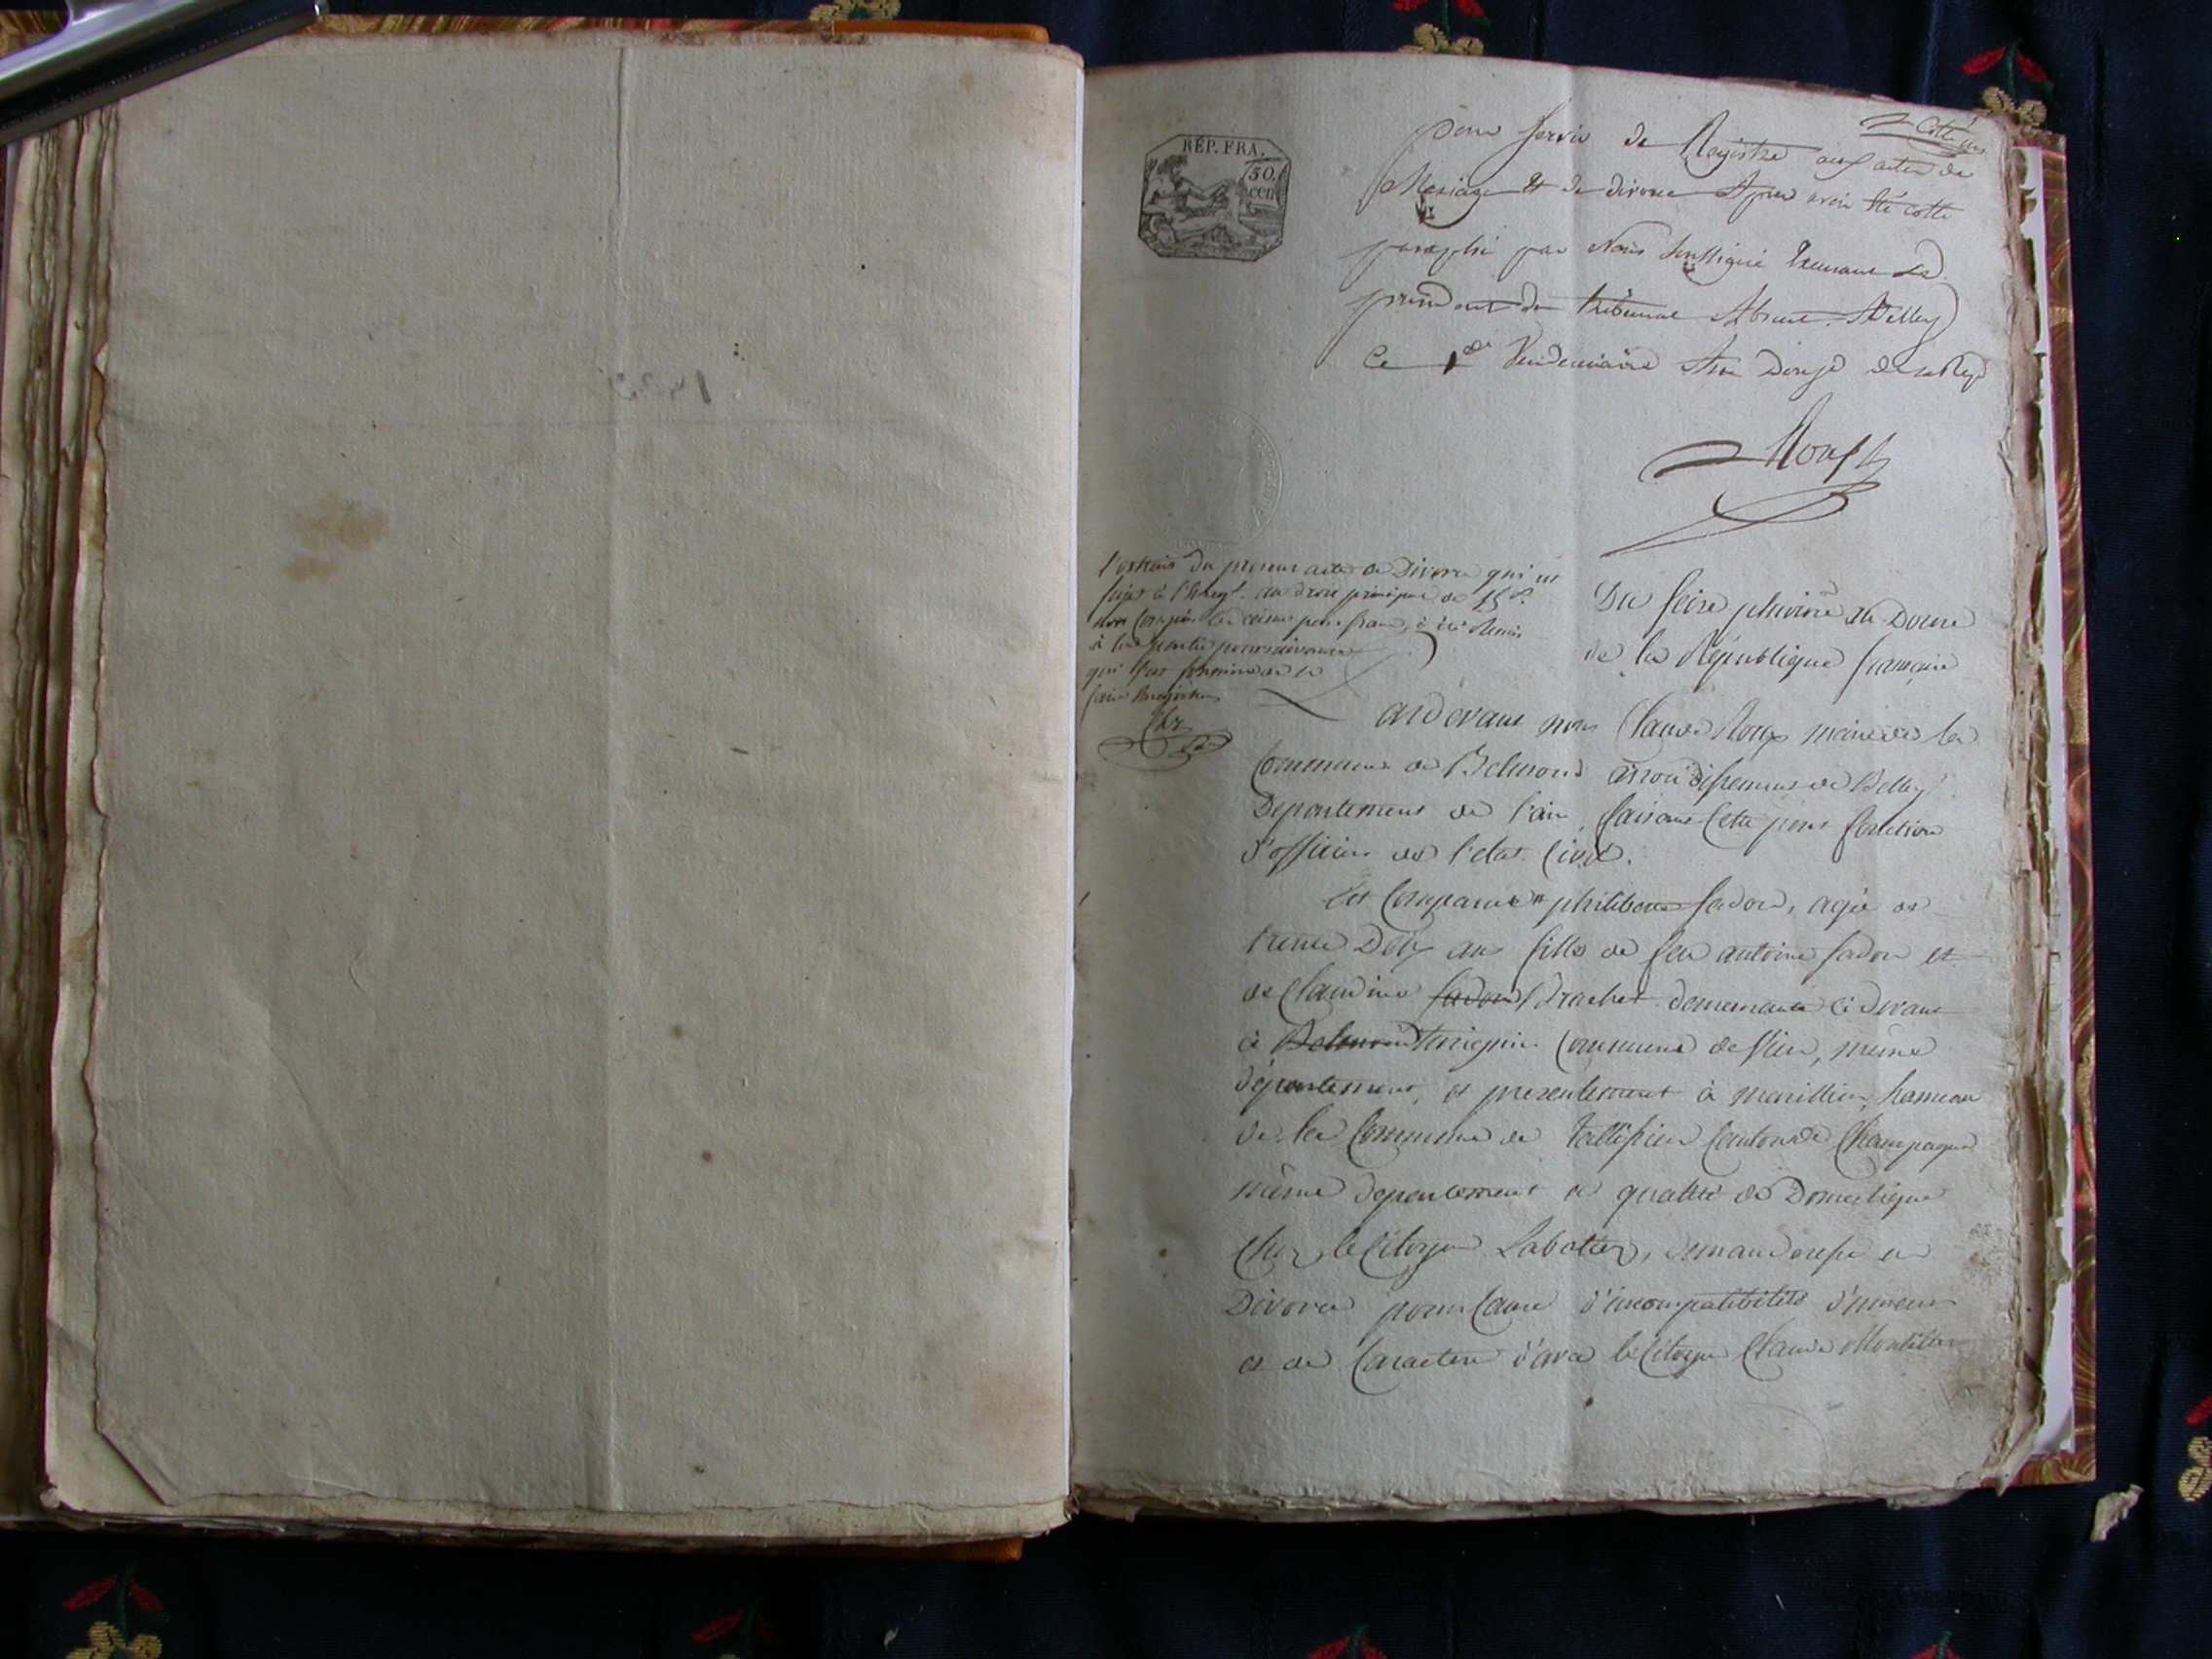 Cotté
RÉP. FRA.
50.
cen
pour servir de Registre aux actes de
Mariage et de divorce Apres avoir été cotté
paraphé par Nous soussigné
president du tribunal Absent. A Belley
Ce 1er Vendemiaire An Douze de la Rep
Roux
l'extrait du present acte de Divorce qui est
sujet à l'Enregt. au droit principal de 15 f.
non compris les centimes par franc, à été remis
à la partie poursuivante
qui
faire enregistrer
Du seize pluviose an Douze
de la République française
Pardevant nous Claude Roux maire de la
Commune de Belmont arrondissement de Belley
Departement de l'ain, faisant cette part fonction
d'officier de l'etat Civil.
Est Comparue philiberte fadon, agée de
trente Deux ans fille de feu antoine fadon et
de Claudine fadon Brachet demeurante ci devant
à Belmont Commune de Vieu, même
département, et presentement à hameau
de la Commune de Tallissieu Canton de Champagne
même departement en qualité de Domestique
Chez le Citoyen Labatier, demanderesse en
Divorce pour Cause d'incompatibilité d'humeur
et de Caractere d'avec le Citoyen Claude